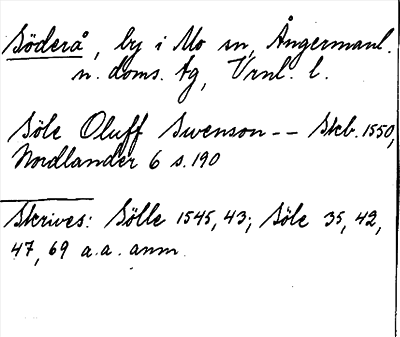 Söderå, by i Mo sn, Ångermanl.
n. doms. tg, Vrnl. l.
Söle Oluff Swenson -- Skb. 1550,
Nordlander 6 s. 190
Skrives: Sölle 1545, 43; Söle 35, 42,
47, 69 a.a. anm.